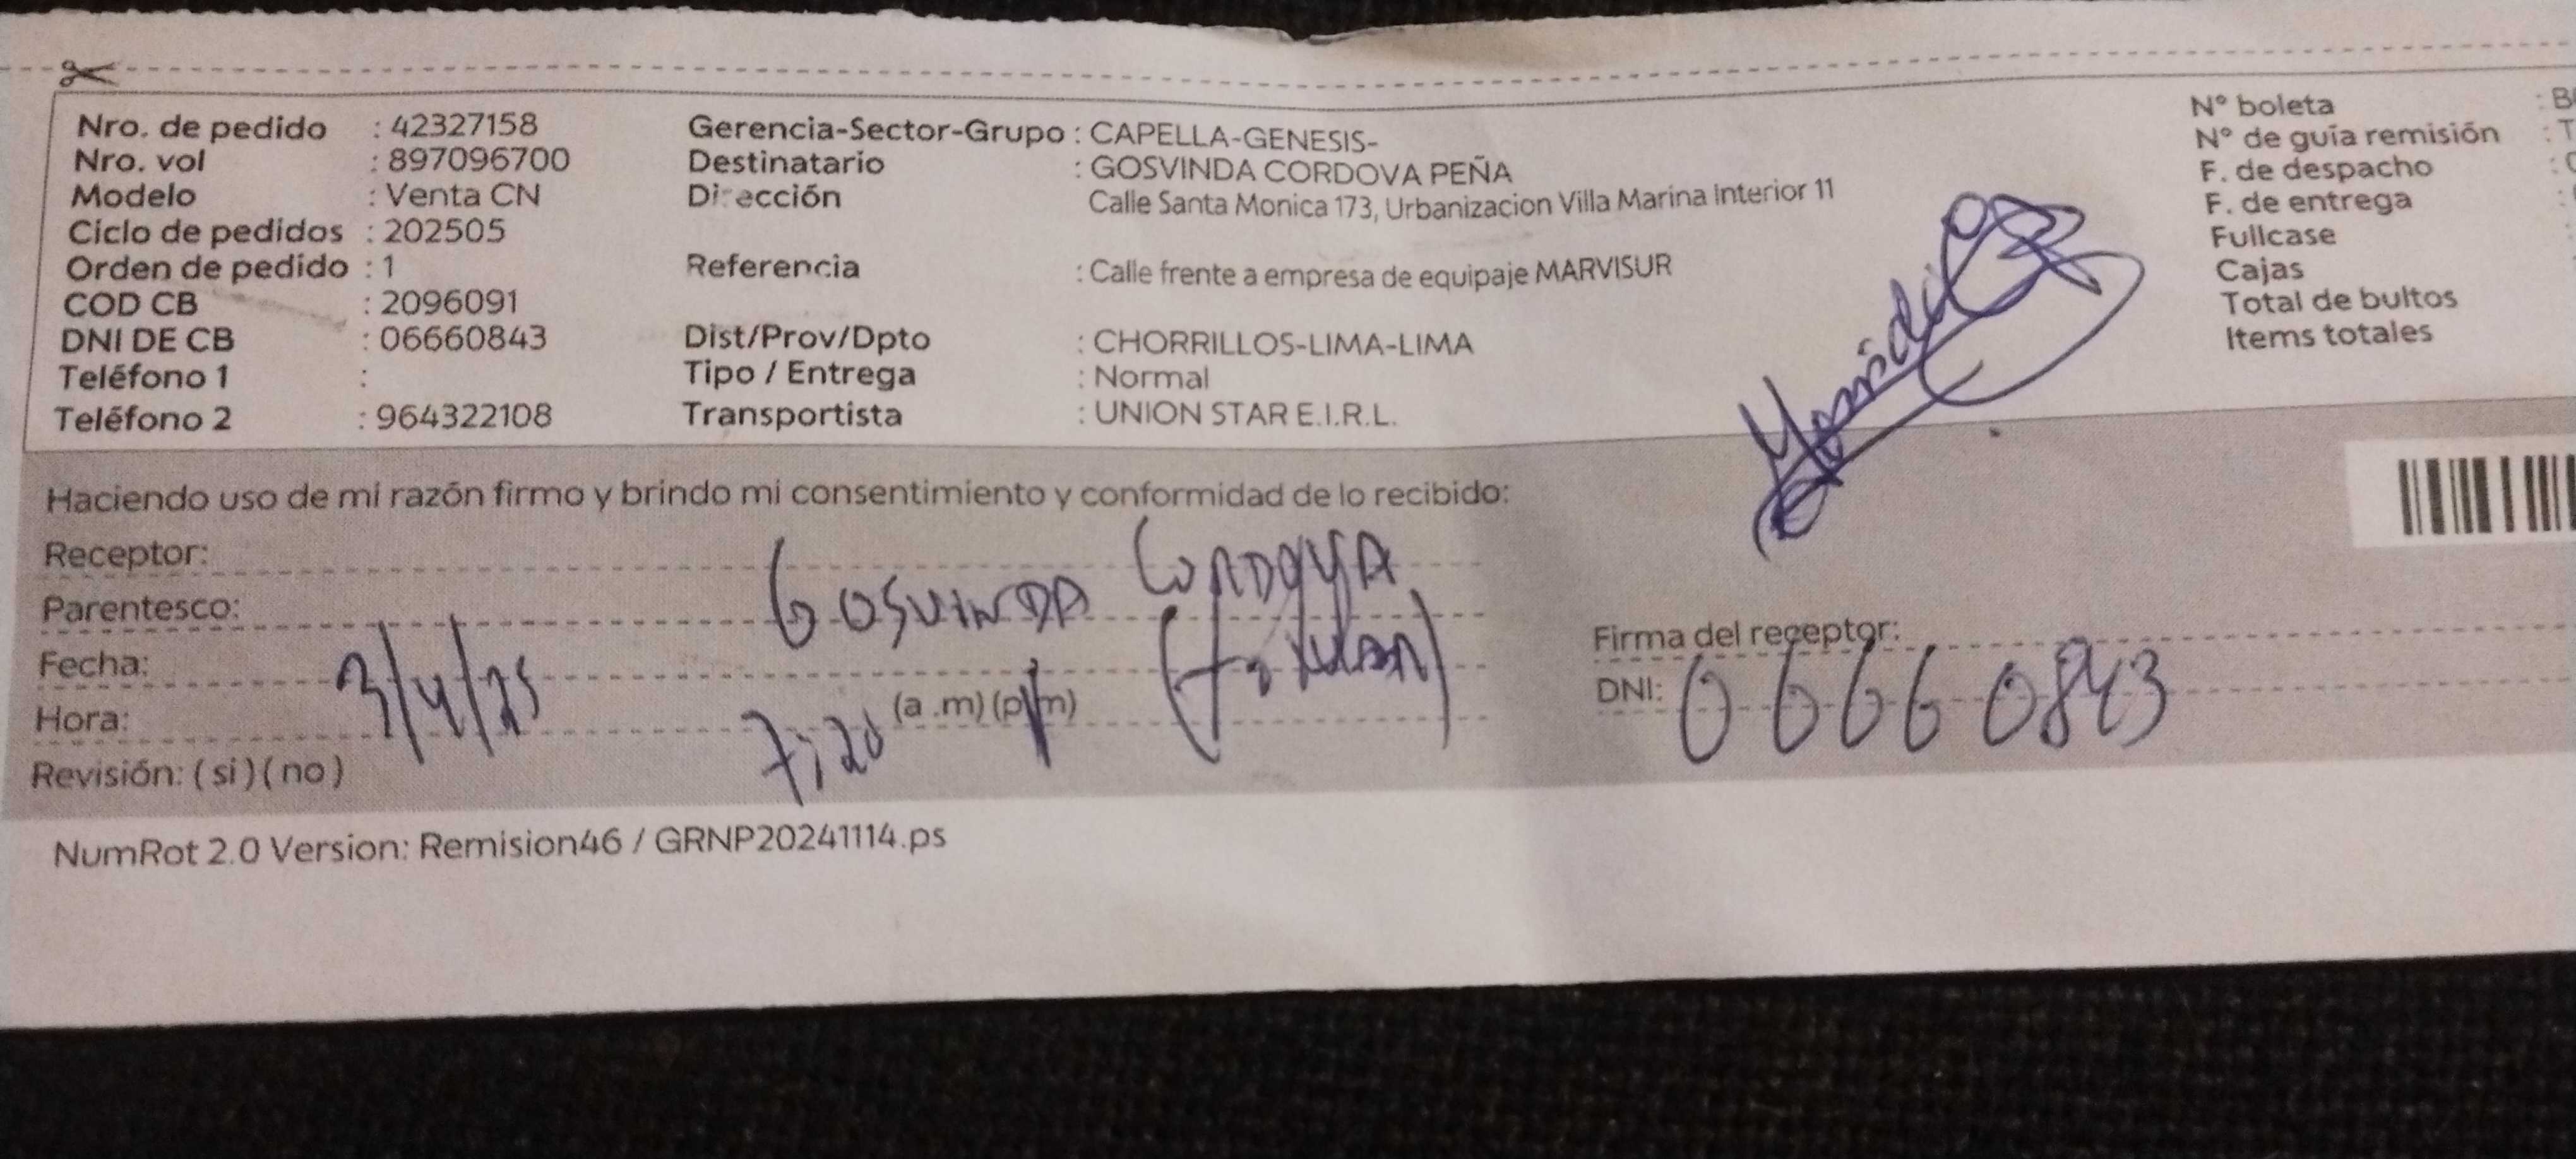 Nro. de pedido : 42327158
Nro. vol : 897096700
Modelo : Venta CN
Ciclo de pedidos : 202505
Orden de pedido : 1
COD CB : 2096091
DNI DE CB : 06660843
Teléfono 1 :
Teléfono 2 : 964322108
Gerencia-Sector-Grupo : CAPELLA-GENESIS-
Destinatario : GOSVINDA CORDOVA PEÑA
Dirección Calle Santa Monica 173, Urbanizacion Villa Marina Interior 11
Referencia : Calle frente a empresa de equipaje MARVISUR
Dist/Prov/Dpto : CHORRILLOS-LIMA-LIMA
Tipo / Entrega : Normal
Transportista : UNION STAR E.I.R.L.
N° boleta : B
N° de guía remisión : T
F. de despacho :
F. de entrega :
Fullcase
Cajas
Total de bultos
Items totales
Haciendo uso de mi razón firmo y brindo mi consentimiento y conformidad de lo recibido:
Receptor:
GOSVINDA CORDOVA
Parentesco:
Fecha: 3/4/25
Hora: 7:20 (a .m) (p m)
Revisión: ( si ) ( no )
Firma del receptor:
DNI: 06660843
NumRot 2.0 Version: Remision46 / GRNP20241114.ps